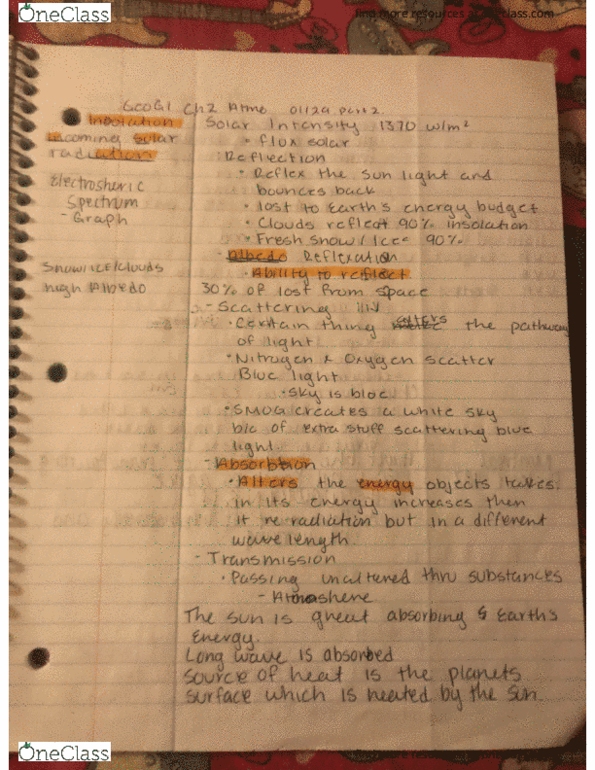 OneClass
find more resources at oneclass.com
GEOG1 Ch2 Atmo 01129 part 2
Insolation
incoming solar
radiation
Electrosheric
Spectrum
- Graph
Snow/ICE/Clouds
high Albedo
Solar Intensity 1370 w/m²
• flux solar
Reflection
• Reflex the sun light and
bounces back
• lost to Earth's energy budget
• Clouds reflect 90% insolation
• Fresh snow/Ice 90%
• Albedo Reflexation
• Ability to reflect
30% of lost from space
- Scattering
• Certain thing alters the pathway
of light
• Nitrogen & Oxygen scatter
Blue light
• Sky is bloe
• SMOG creates a white sky
b/c of extra stuff scattering blue
light.
- Absorbtion
• Alters the energy objects takes
in its energy increases then
it re-radiation but in a different
wavelength.
- Transmission
• Passing unaltered thru substances
- Atmoshene
The sun is great absorbing & Earth's
Energy.
Long wave is absorbed
Source of heat is the planets
surface which is heated by the sun.
OneClass
OneClass